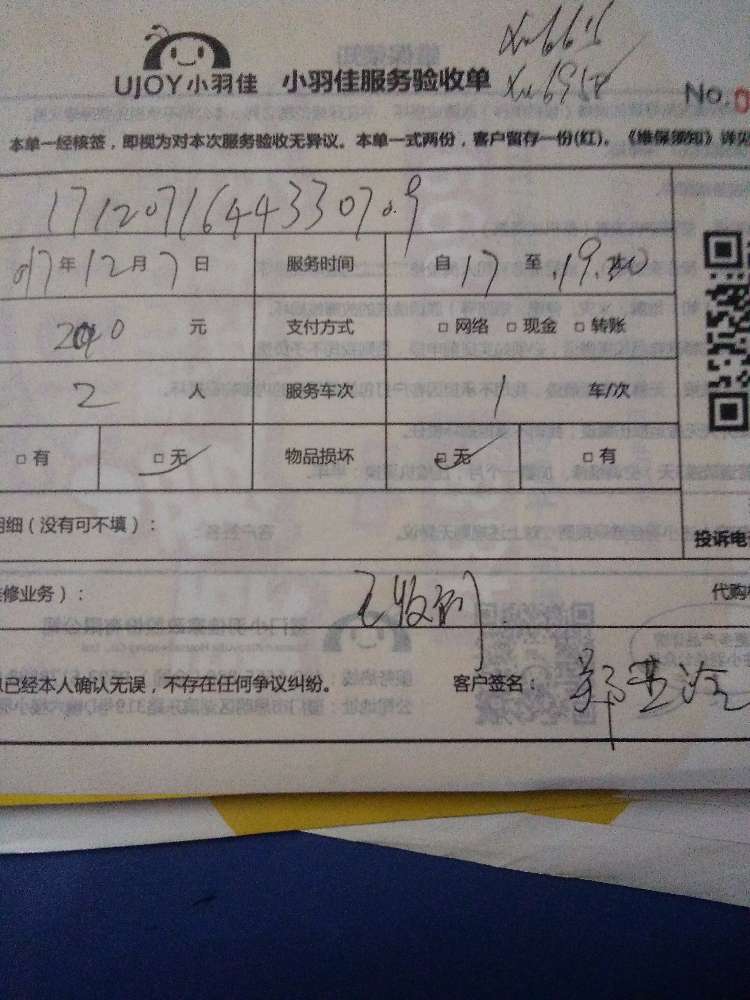 Xu6615
Xu6958
UJOY小羽佳 小羽佳服务验收单
No.0
本单一经核签，即视为对本次服务验收无异议。本单一式两份，客户留存一份(红)。《维保须知》详见
171207164433070.9
017年12月7日 服务时间 自17至.19.30
元 支付方式 □网络 □现金 □转账
2人 服务车次 1车/次
□有 □无 物品损坏 □无 □有
明细（没有可不填）：
投诉电
修业务）： 已收到
代购
已经本人确认无误，不存在任何争议纠纷。 客户签名：